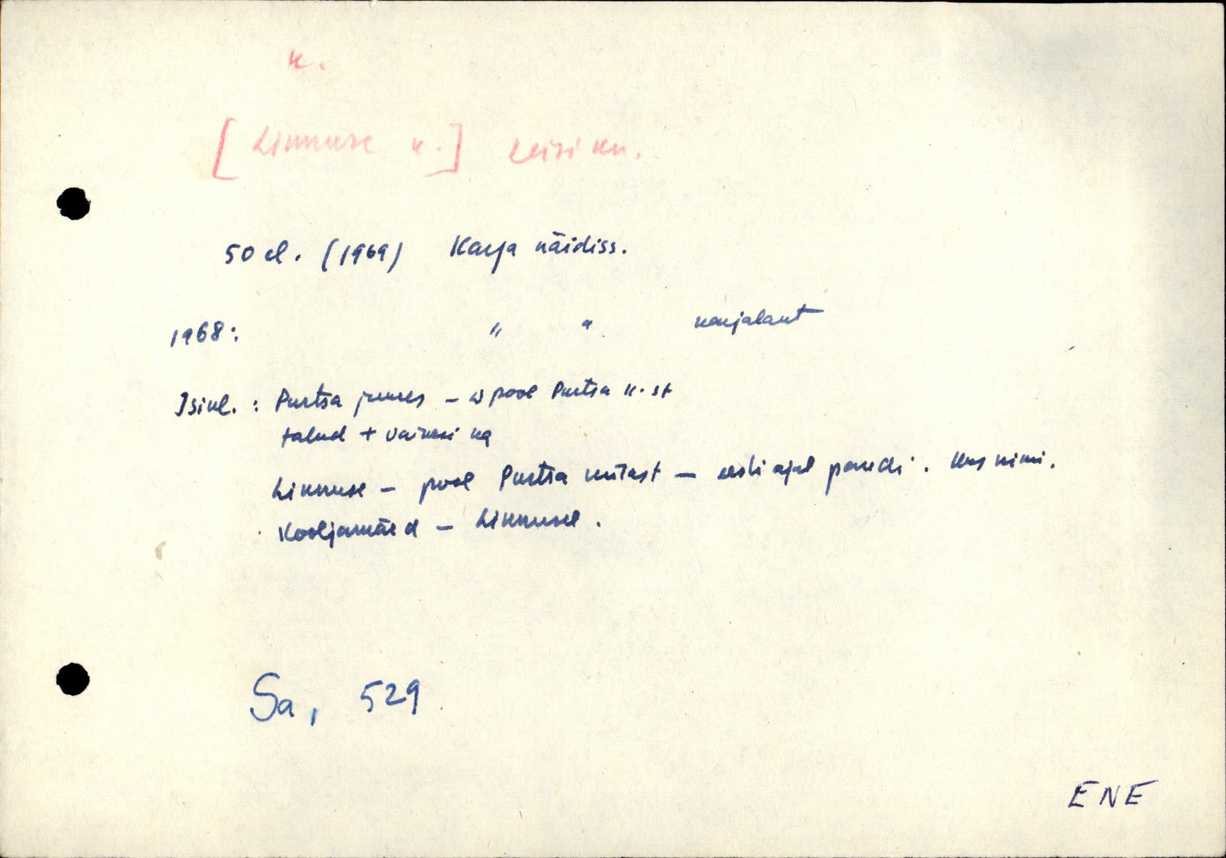 k.
[Linnuse k.] Leisi kn.
50 el. (1969) Karja näidiss.
1968: " " karjalaut
Isikl.: Purtsa juures – pool Purtsa k. st
talud + vainasi ka
Linnuse – pool Purtsa külast – eesti ajal pandi. Uus nimi.
Kooljamäed – Linnusel.
Sa, 529
ENE